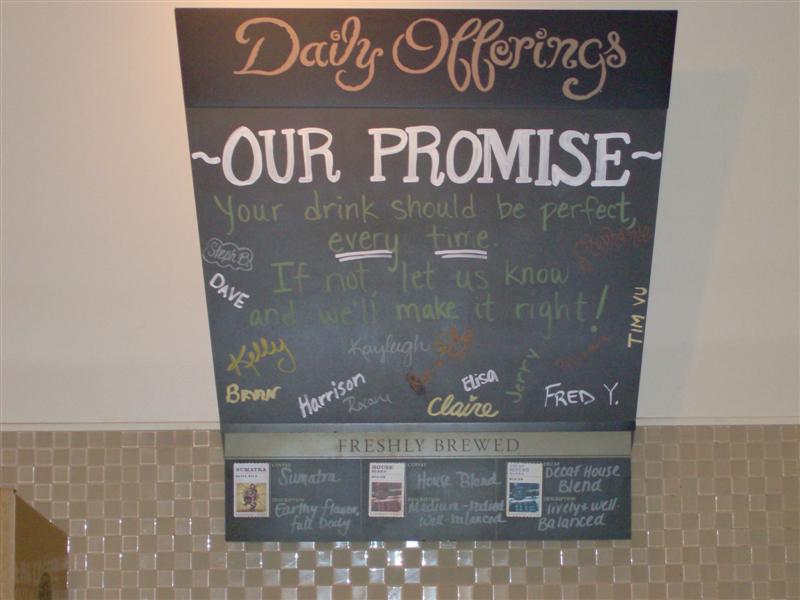 Daily Offerings
~OUR PROMISE~
Your drink should be perfect,
every time.
If not, let us know
and we'll make it right!
Steph B.
DAVE
TIM VU
Kelly
Kayleigh
Jerry
BRYAN
Harrison
Roxane
ELISA
Claire
FRED Y.
FRESHLY BREWED
SUMATRA
COFFEE
Sumatra
DESCRIPTION
Earthy flavor,
full body
HOUSE
BLEND
COFFEE
House Blend
DESCRIPTION
Medium-Bodied
Well-balanced
DECAF
HOUSE
BLEND
DECAF
Decaf House
Blend
DESCRIPTION
lively + well-
Balanced